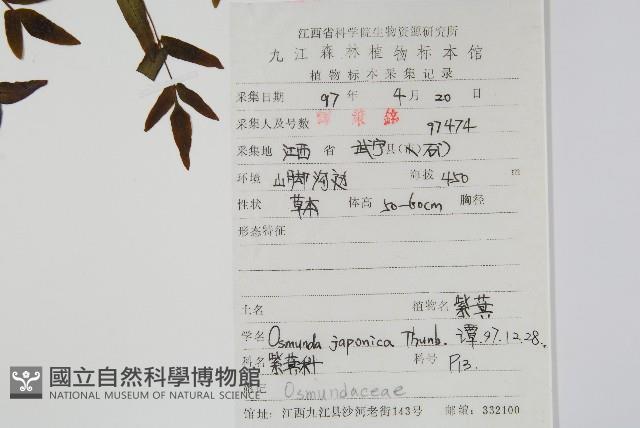 江西省科学院生物资源研究所
九江森林植物标本馆
植物标本采集记录
采集日期 97 年 4 月 20 日
采集人及号数 譚策銘 97474
采集地 江西 省 武宁 县(石)
环境 山脚沟边 海拔 450 m
性状 草本 体高 50-60cm 胸径
形态特征
土名 植物名 紫萁
学名 Osmunda japonica Thunb. 谭.97.12.28.
科名 紫萁科 科号 P13.
鉴定 Osmundaceae
馆址: 江西九江县沙河老街143号 邮编: 332100
國立自然科學博物館
NATIONAL MUSEUM OF NATURAL SCIENCE